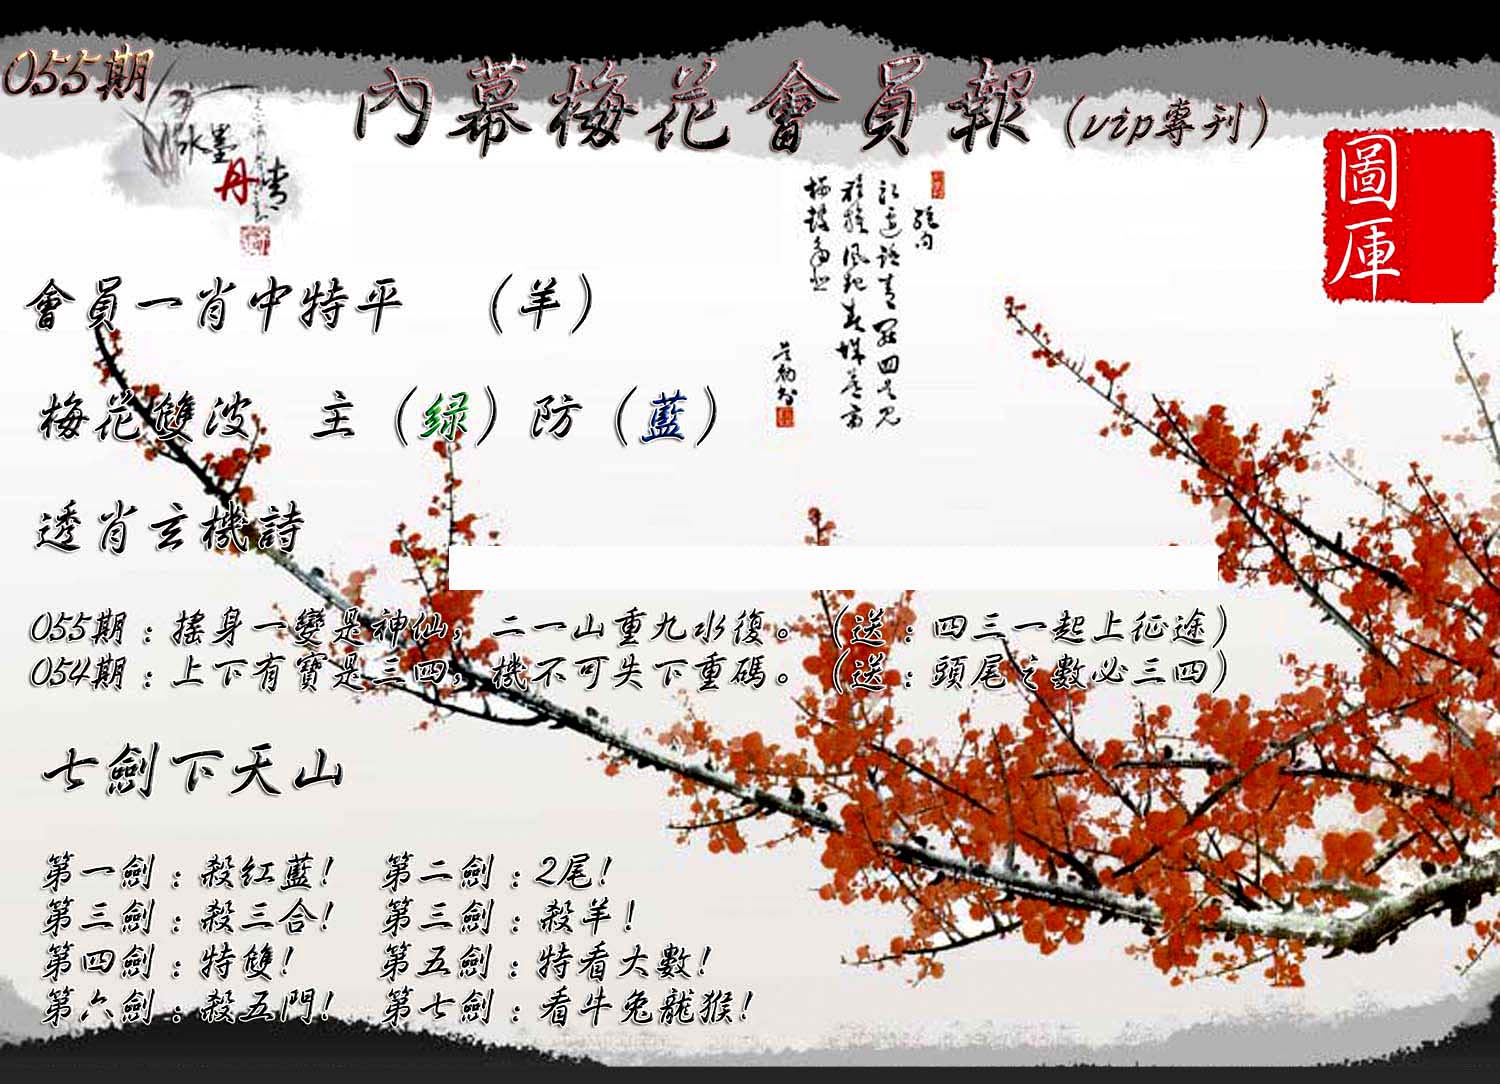 055期
內幕梅花會員報（vip專刊）
水墨
丹青
圖庫
會員一肖中特平　（羊）
梅花雙波　主（绿）防（藍）
透肖玄機詩
055期：搖身一變是神仙，二一山重九水復。（送：四三一起上征途）
054期：上下有寶是三四，機不可失下重碼。（送：頭尾之數必三四）
七劍下天山
第一劍：殺红藍！　第二劍：2尾！
第三劍：殺三合！　第三劍：殺羊！
第四劍：特雙！　第五劍：特看大數！
第六劍：殺五門！　第七劍：看牛兔龍猴！